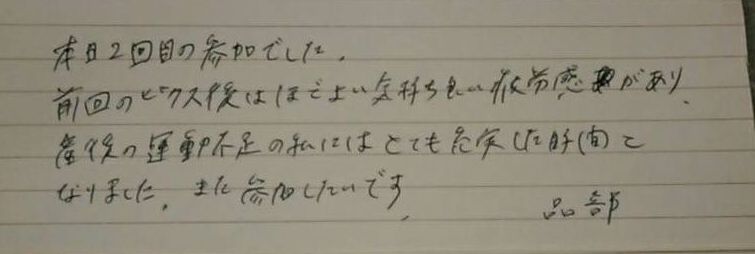 本日2回目の参加でした。
前回のビクス後はほどよい気持ち良い疲労感があり、
産後の運動不足の私にはとても充実した時間と
なりました。また参加したいです。
品部